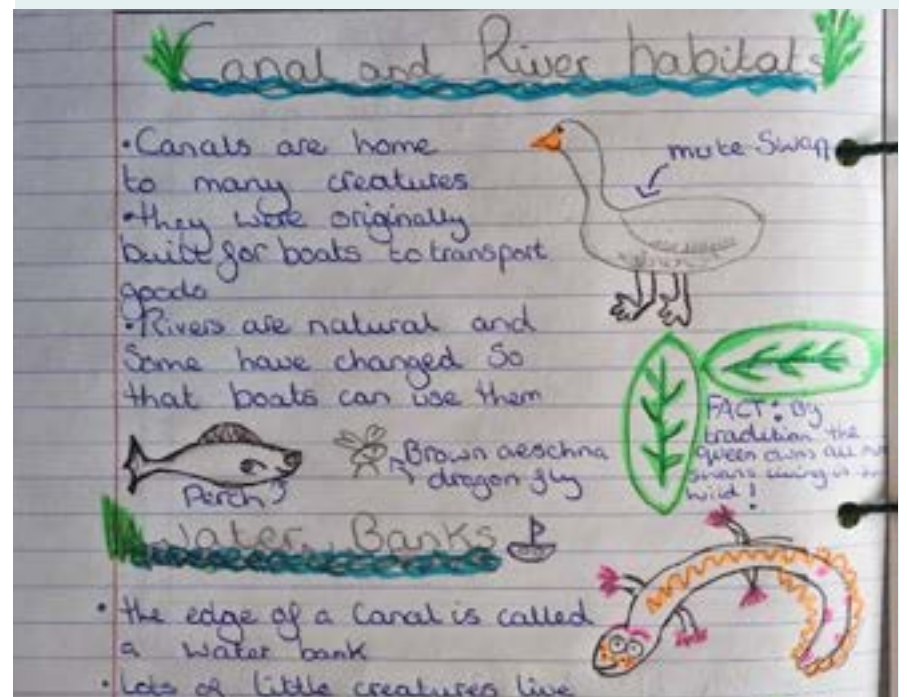 Canal and River habitats
•Canals are home
to many creatures
•they were originally
built for boats to transport
goods
•Rivers are natural and
Some have changed So
that boats can use them
mute Swan
Perch
Brown aeschna
dragon fly
FACT: By
tradition the
queen owns all
swans living in
wild!
Water Banks
• the edge of a Canal is called
a water bank
• Lots of little creatures live